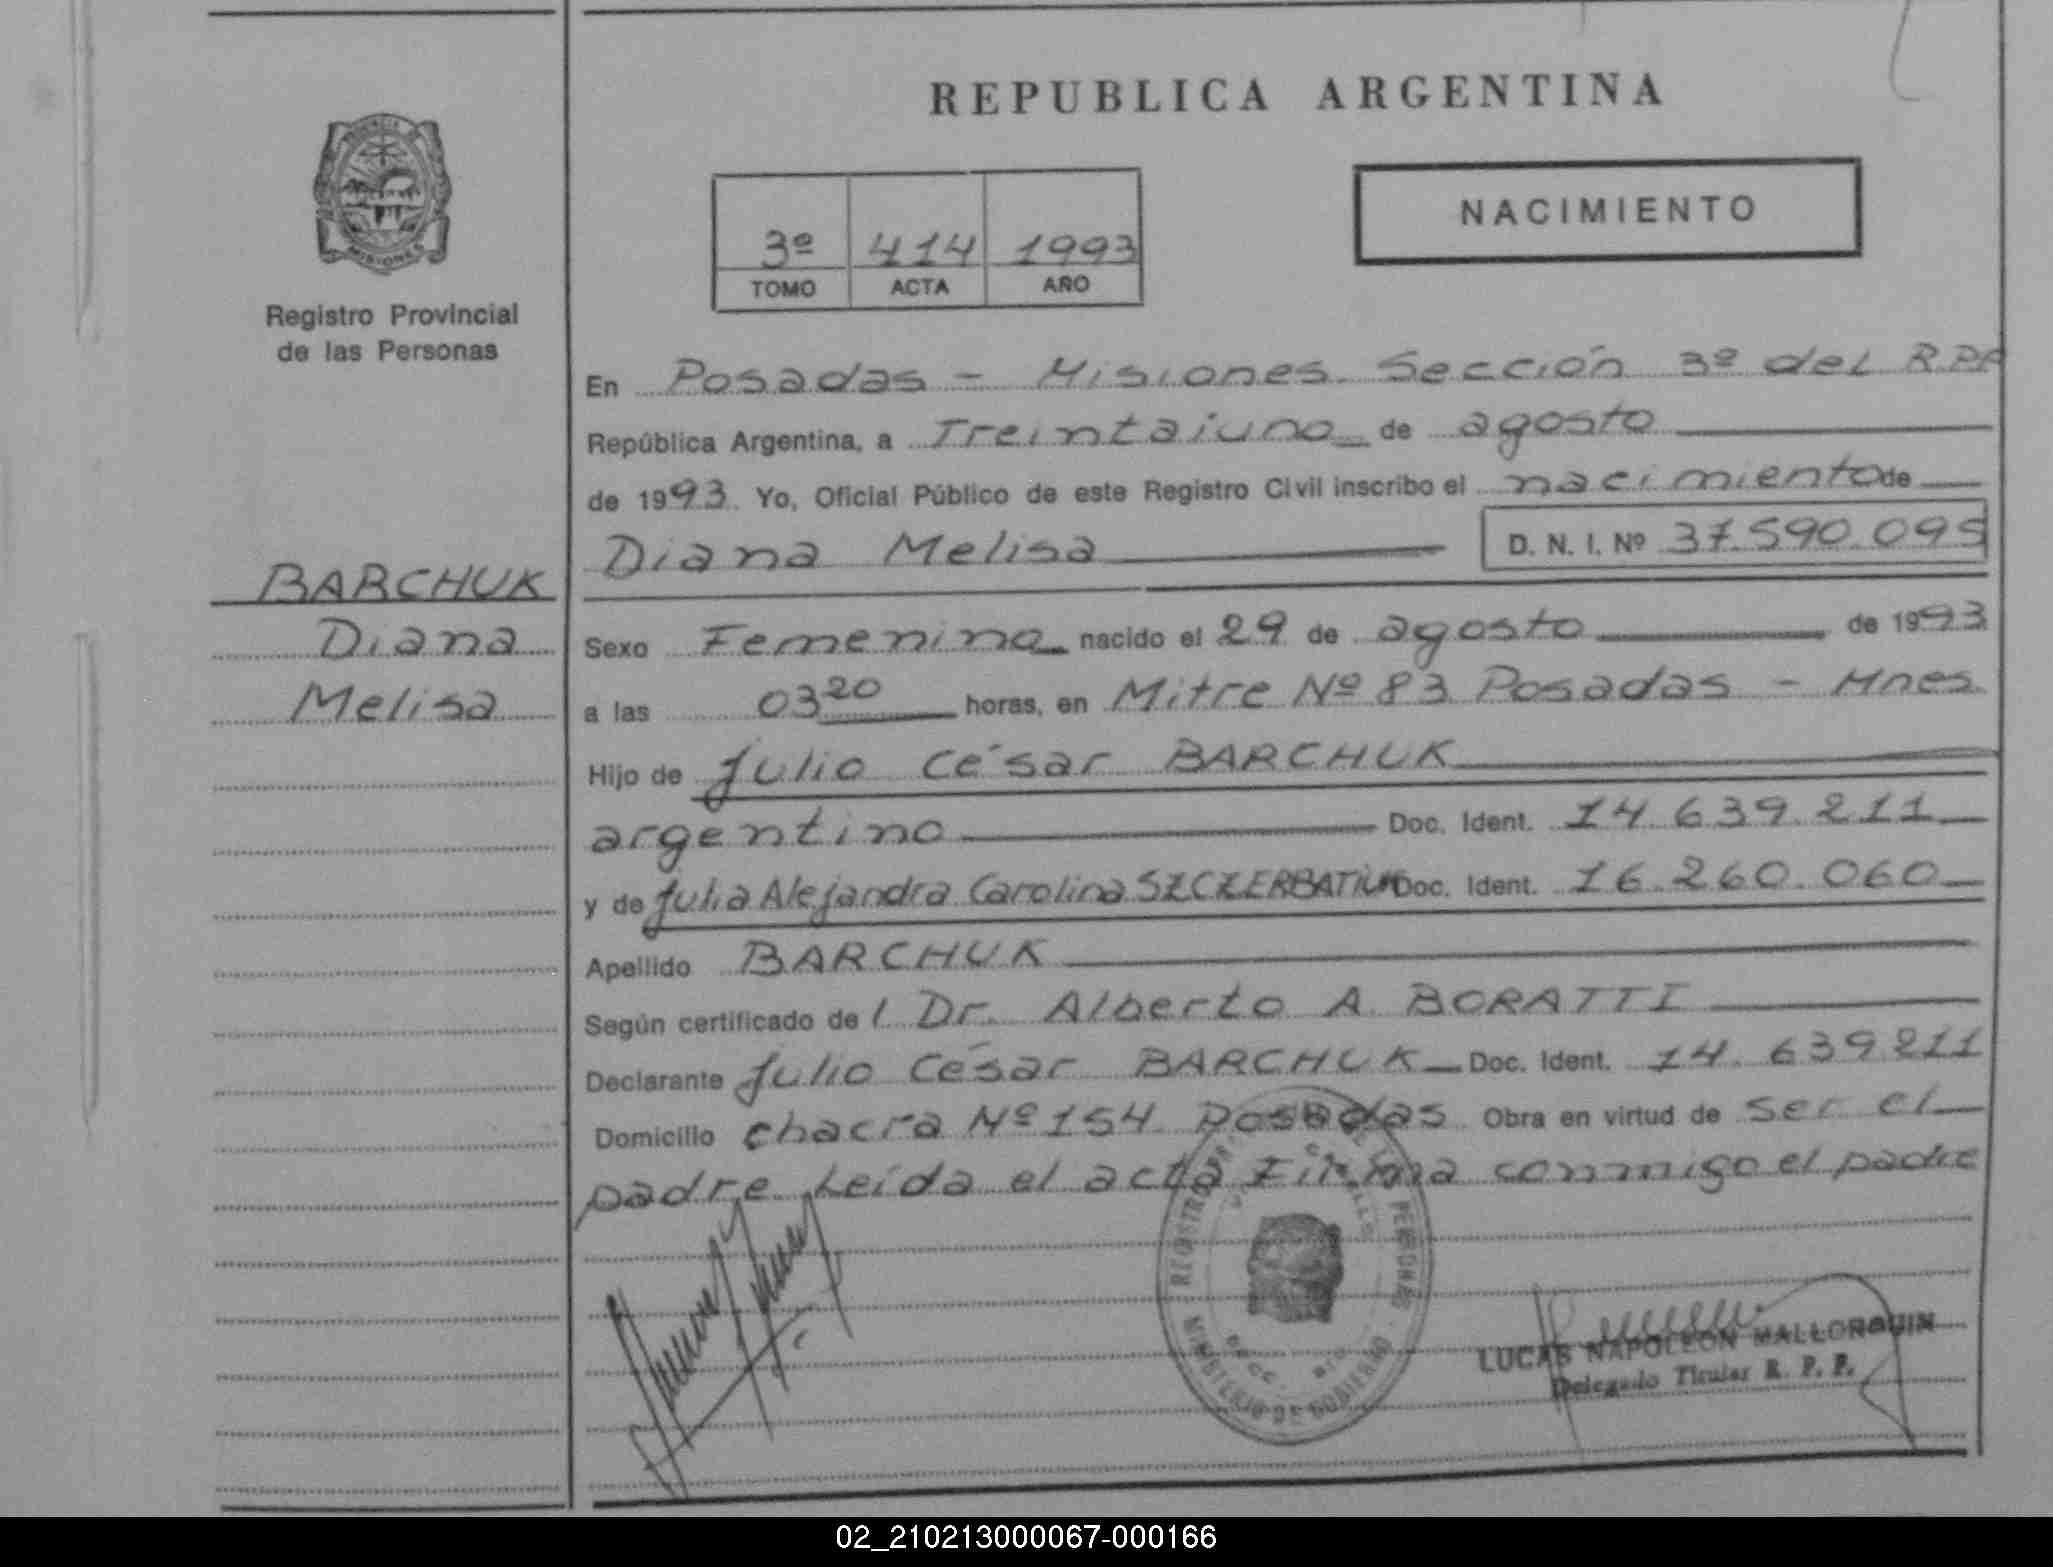 REPUBLICA ARGENTINA
PROVINCIA DE
MISIONES
Registro Provincial
de las Personas
3º 414 1993
TOMO ACTA AÑO
NACIMIENTO
En Posadas - Misiones. Sección 3º del R.P.P
República Argentina, a Treintaiuno de agosto
de 1993. Yo, Oficial Público de este Registro Civil inscribo el nacimiento de
Diana Melisa D. N. I. Nº 37.590.095
BARCHUK
Diana
Melisa
Sexo Femenino nacido el 29 de agosto de 1993
a las 03 20 horas, en Mitre Nº 83 Posadas - Mnes.
Hijo de Julio César BARCHUK
argentino Doc. Ident. 14.639.211
y de Julia Alejandra Carolina SZCZERBATIUK Doc. Ident. 16.260.060
Apellido BARCHUK
Según certificado de l Dr. Alberto A. BORATTI
Declarante Julio César BARCHUK Doc. Ident. 14.639.211
Domicilio chacra Nº 154 Posadas Obra en virtud de ser el
padre. Leída el acta Firma conmigo el padre
REGISTRO DE LAS PERSONAS
MINISTERIO DE GOBIERNO
LUCAS NAPOLEON MALLORQUIN
Delegado Titular R. P. P.
02_210213000067-000166